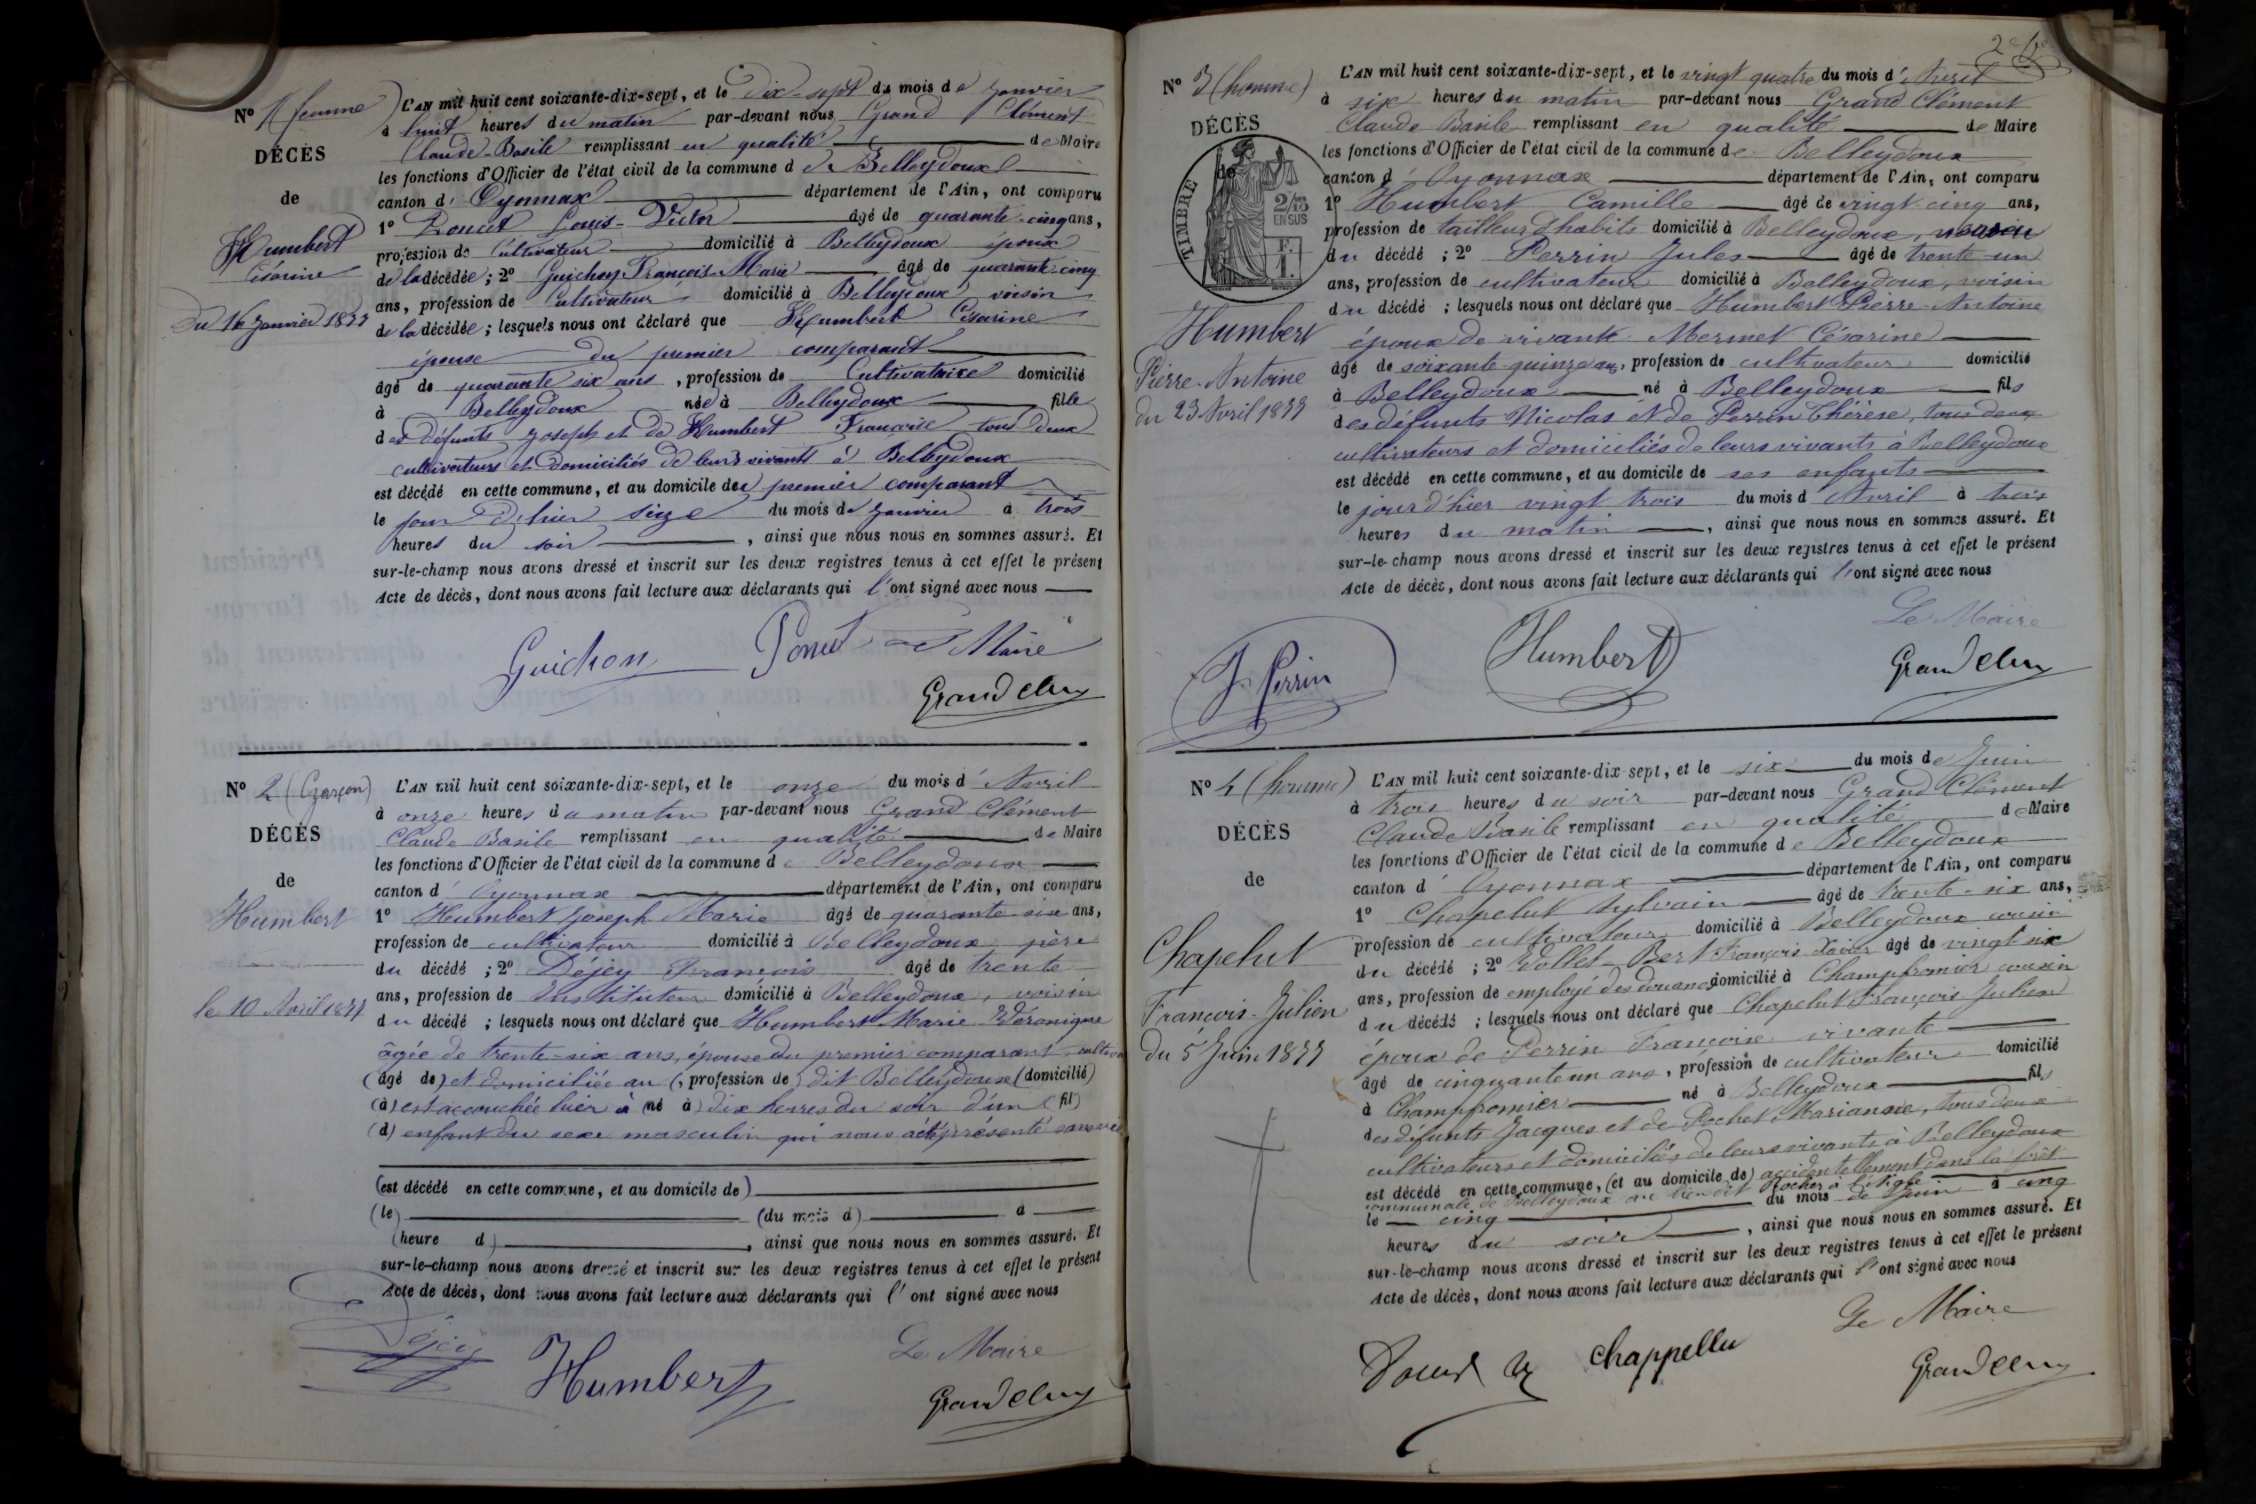 N° 1 (femme)
DÉCÈS
de
Humbert
Césarine
du 16 Janvier 1877
L'AN mil huit cent soixante-dix-sept, et le dix-sept du mois de Janvier
à huit heures du matin par-devant nous Grand Clément
Claude-Basile remplissant en qualité de Maire
les fonctions d'Officier de l'état civil de la commune d de Belleydoux
canton d' Oyonnax département de l'Ain, ont comparu
1° Poncet Louis-Victor âgé de quarante-cinq ans,
profession de Cultivateur domicilié à Belleydoux époux
de la décédée ; 2° Guichon François-Marie âgé de quarante-cinq
ans, profession de Cultivateur domicilié à Belleydoux voisin
de la décédée ; lesquels nous ont déclaré que Humbert Césarine
épouse du premier comparant
âgé de quarante six ans, profession de Cultivatrice domicilié
à Belleydoux née à Belleydoux fille
des défunts Joseph et de Humbert Françoise tous deux
cultivateurs et domiciliés de leurs vivants à Belleydoux
est décédé en cette commune, et au domicile deu premier comparant
le jour d'hier seize du mois de Janvier à trois
heures du soir, ainsi que nous nous en sommes assuré. Et
sur-le-champ nous avons dressé et inscrit sur les deux registres tenus à cet effet le présent
Acte de décès, dont nous avons fait lecture aux déclarants qui l'ont signé avec nous
Guichon Poncet Le Maire
Grand Clem
N° 2 (Garçon)
DÉCÈS
de
Humbert
le 10 Avril 1877
L'AN mil huit cent soixante-dix-sept, et le onze du mois d' Avril
à onze heures du matin par-devant nous Grand Clément
Claude Basile remplissant en qualité de Maire
les fonctions d'Officier de l'état civil de la commune de Belleydoux
canton d' Oyonnax département de l'Ain, ont comparu
1° Humbert Joseph Marie âgé de quarante-six ans,
profession de cultivateur domicilié à Belleydoux, père
du décédé ; 2° Déjey François âgé de trente
ans, profession de Instituteur domicilié à Belleydoux, voisin
du décédé ; lesquels nous ont déclaré que Humbert Marie Véronique
âgée de trente-six ans, épouse du premier comparant, cultiva
(âgé de) et domiciliée au (, profession de) dit Belleydoux (domicilié)
(à) est accouchée hier à (né à) dix heures du soir d'un (fil)
(d) enfant du sexe masculin qui nous a été présenté sans vie
(est décédé en cette commune, et au domicile de)
(le) (du mois d) à
(heure d), ainsi que nous nous en sommes assuré. Et
sur-le-champ nous avons dressé et inscrit sur les deux registres tenus à cet effet le présent
Acte de décès, dont nous avons fait lecture aux déclarants qui l'ont signé avec nous
Déjey Humbert Le Maire
Grand Clem
N° 3 (homme)
DÉCÈS
de
TIMBRE
2/10
EN SUS
Humbert
Pierre-Antoine
du 23 Avril 1877
L'AN mil huit cent soixante-dix-sept, et le vingt quatre du mois d' Avril
à six heures du matin par-devant nous Grand Clément
Claude Basile remplissant en qualité de Maire
les fonctions d'Officier de l'état civil de la commune de Belleydoux
canton d' Oyonnax département de l'Ain, ont comparu
1° Humbert Camille âgé de vingt cinq ans,
profession de tailleur d'habits domicilié à Belleydoux,
du décédé ; 2° Perrin Jules âgé de trente-un
ans, profession de cultivateur domicilié à Belleydoux, voisin
du décédé ; lesquels nous ont déclaré que Humbert Pierre-Antoine
époux de vivante Mermet Césarine
âgé de soixante quinze ans, profession de cultivateur domicilié
à Belleydoux né à Belleydoux fils
des défunts Nicolas et de Perrin Thérèse, tous deux
cultivateurs et domiciliés de leurs vivants à Belleydoux
est décédé en cette commune, et au domicile de ses enfants
le jour d'hier vingt trois du mois d Avril à trois
heures du matin, ainsi que nous nous en sommes assuré. Et
sur-le-champ nous avons dressé et inscrit sur les deux registres tenus à cet effet le présent
Acte de décès, dont nous avons fait lecture aux déclarants qui l'ont signé avec nous
Le Maire
J. Perrin Humbert Grand Clem
N° 4 (homme)
DÉCÈS
de
Chapelut
François-Julien
du 5 Juin 1877
L'AN mil huit cent soixante-dix-sept, et le six du mois de Juin
à trois heures du soir par-devant nous Grand Clément
Claude Basile remplissant en qualité de Maire
les fonctions d'Officier de l'état civil de la commune de Belleydoux
canton d' Oyonnax département de l'Ain, ont comparu
1° Chapelut Sylvain âgé de trente-six ans,
profession de cultivateur domicilié à Belleydoux cousin
du décédé ; 2° Vollet-Bert François Xavier âgé de vingt six
ans, profession de employé des douanes domicilié à Champfromier cousin
du décédé ; lesquels nous ont déclaré que Chapelut François Julien
époux de Perrin Françoise vivante
âgé de cinquante un ans, profession de cultivateur domicilié
à Champfromier né à Belleydoux fils
des défunts Jacques et de Pochet Marianne, tous deux
cultivateurs et domiciliés de leurs vivants à Belleydoux
est décédé en cette commune, (et au domicile de) accidentellement dans la forêt
communale de Belleydoux au lieu dit Rocher à l'Aigle
le cinq du mois de Juin à cinq
heures du soir, ainsi que nous nous en sommes assuré. Et
sur-le-champ nous avons dressé et inscrit sur les deux registres tenus à cet effet le présent
Acte de décès, dont nous avons fait lecture aux déclarants qui l'ont signé avec nous
Le Maire
Chappellu Grand Clem